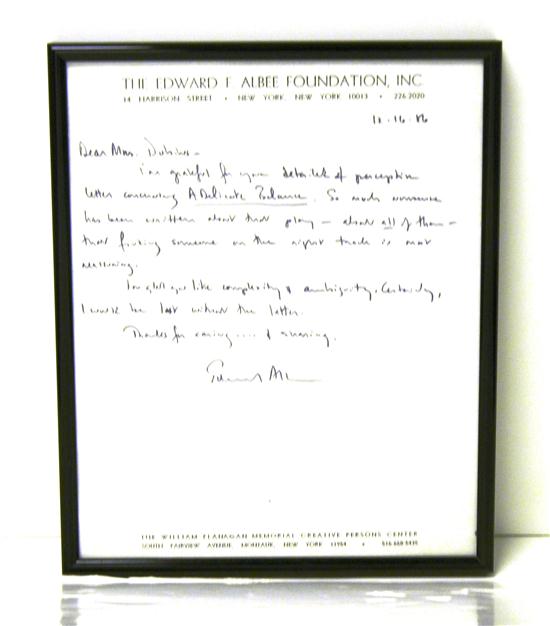 THE EDWARD F. ALBEE FOUNDATION, INC
14 HARRISON STREET • NEW YORK, NEW YORK 10013 • 226-2020
Dear Mrs.
I'm grateful for your detailed & perceptive
letter concerning A Delicate Balance. So much nonsense
has been written about that play — about all of them —
that finding someone on the right track is most
reassuring.
I'm glad you like complexity & ambiguity. Certainly,
I would be lost without the latter.
Thanks for caring .... & sharing.
Edward Albee
THE WILLIAM FLANAGAN MEMORIAL CREATIVE PERSONS CENTER
SOUTH FAIRVIEW AVENUE, MONTAUK, NEW YORK 11954 •